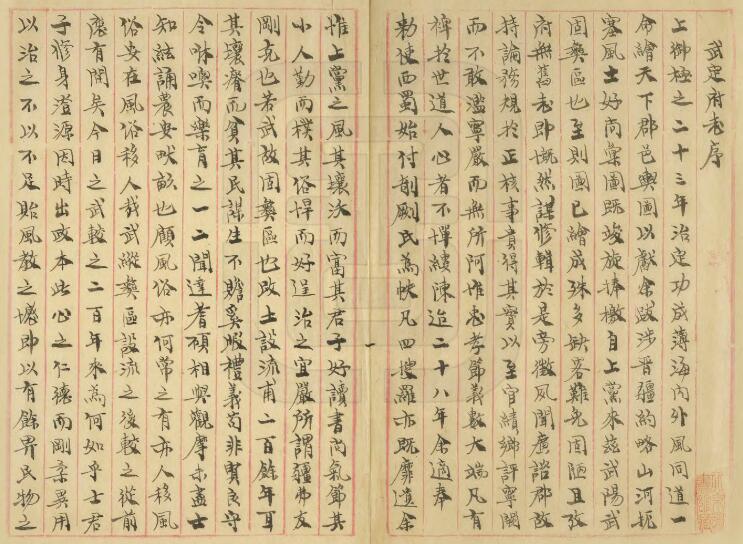 武定府志序
上御極之二十三年治定功成薄海內外風同道一
命繪天下郡邑輿圖以獻余跋涉晉疆約略山河扼
塞風土好尚彙圖既竣旋捧檄自上黨來茲武陽武
固彝區也至則圖已繪成殊多缺畧難免固陋且攷
府無舊志即慨然謀修輯於是旁徵風聞廣諮郡故
持論務規於正核事貴得其實以至官績鄉評寧闕
而不敢濫寧嚴而無所阿惟忠孝節義數大端凡有
裨於世道人心者不憚縷陳迨二十八年余適奉
勅使西蜀始付剞劂氏為帙凡四搜羅亦既靡遺余
惟上黨之風其壤沃而富其君子好讀書尚氣節其
小人勤而樸其俗悍而好逞治之宜嚴所謂疆弗友
剛克也若武故固彝區也改土設流甫二百餘年耳
其壤瘠而貧其民謀生不贍奚暇禮義苟非賢良守
令咻噢而樂育之一二聞達耆碩相與觀摩未盡士
知絃誦農安畎畝也顧風俗亦何常之有亦人移風
俗安在風俗移人哉武縱彝區設流之後較之從前
應有間矣今日之武較之二百年來為何如乎士君
子修身澄源因時出政本此心之仁德而剛柔異用
以治之不以不足貽風教之憾即以有餘畀民物之